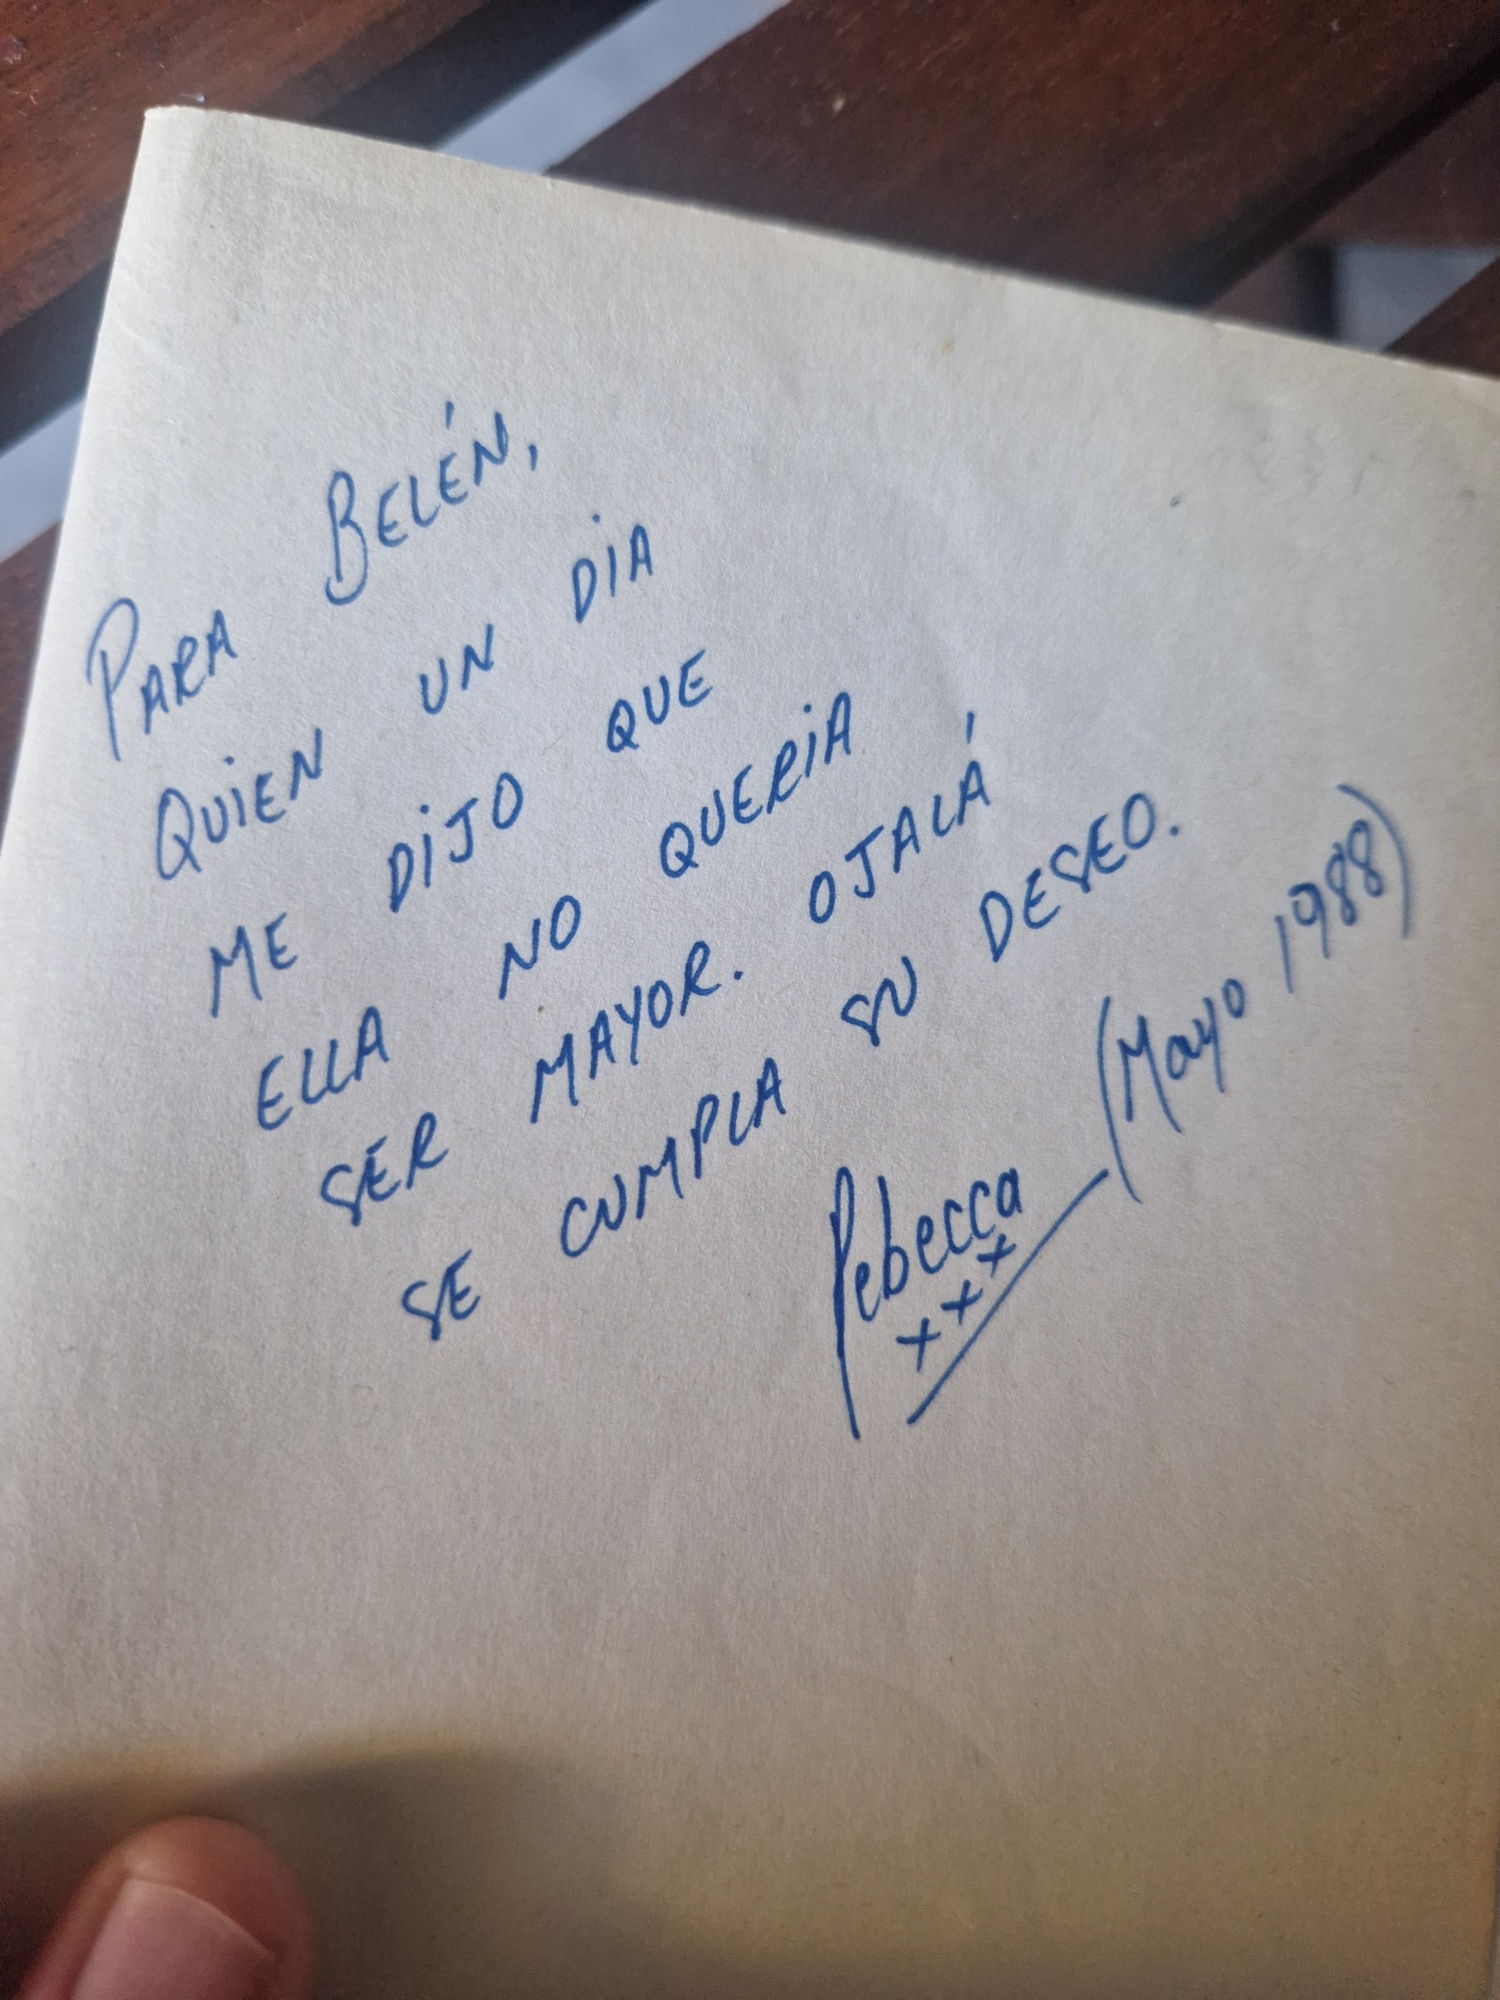 PARA BELÉN,
QUIEN UN DIA
ME DIJO QUE
ELLA NO QUERIA
SER MAYOR. OJALÁ
SE CUMPLA SU DESEO.
Rebecca (Mayo 1988)
x x x